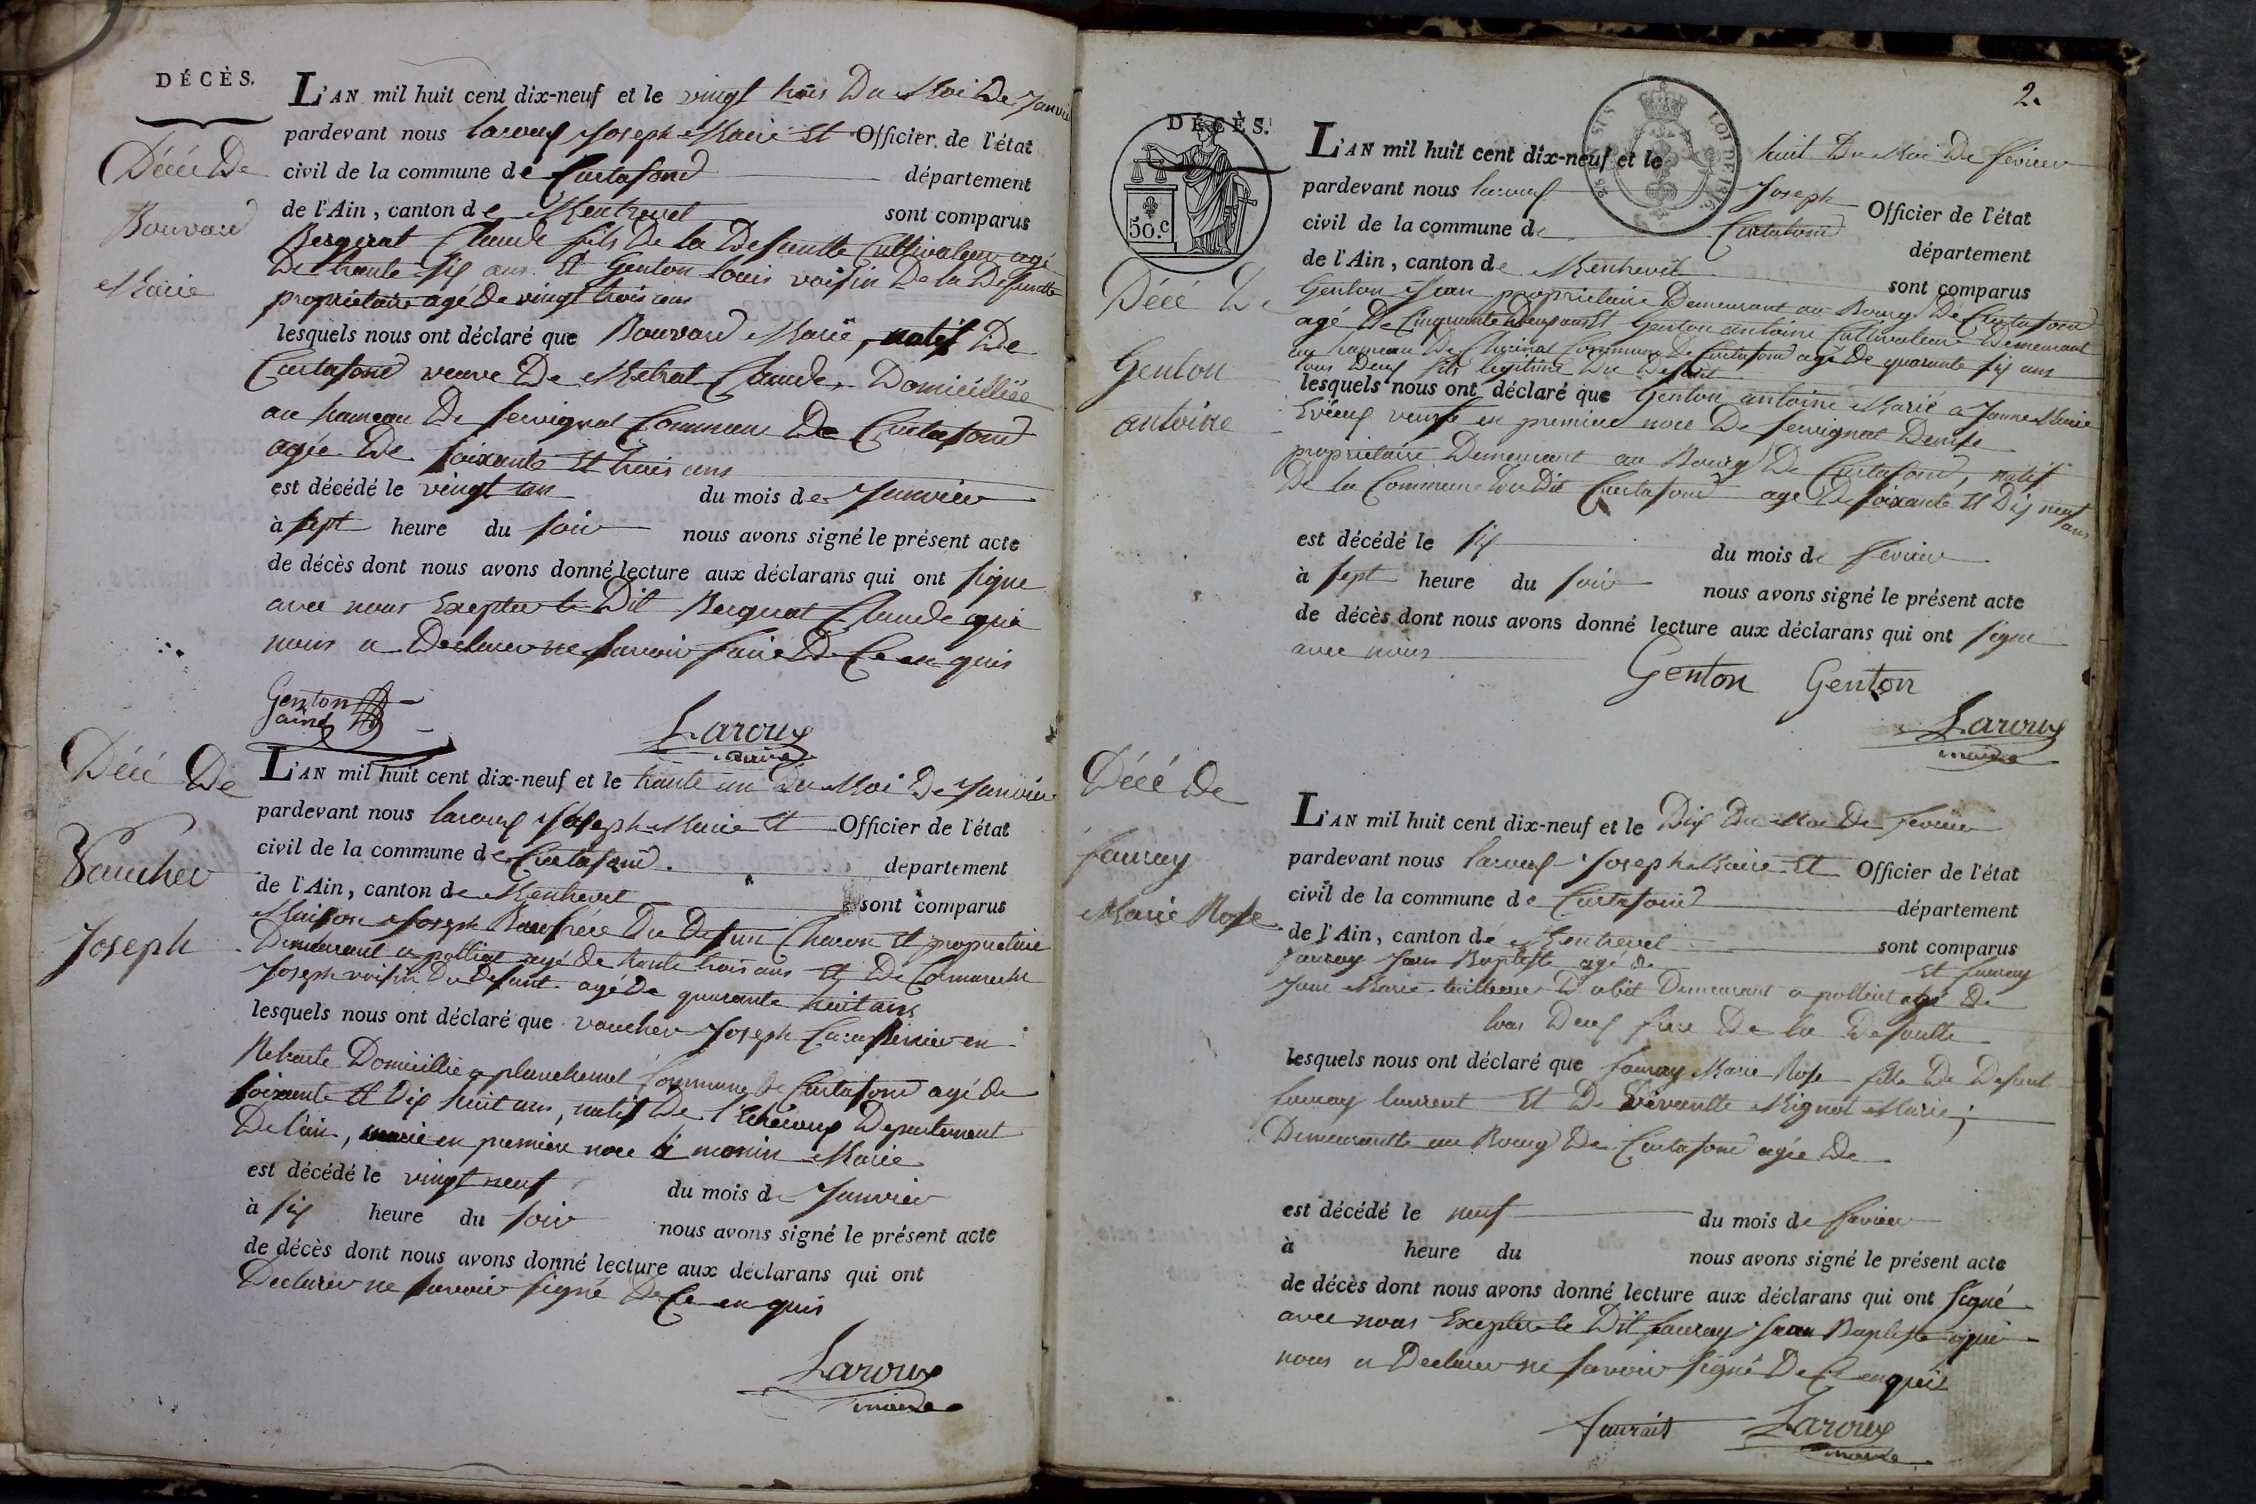 DÉCÈS.
Décé De
Bouvard
Marie
L'AN mil huit cent dix-neuf et le vingt trois Du Moi De Janvier
pardevant nous laroux Joseph Maire Et Officier de l'état
civil de la commune de Curtafond département
de l'Ain, canton de Montrevel sont comparus
Bergerat Claude fils De la Defuntte Cultivateur agé
De trante six ans Et Genton Louis voisin De la Defuntte
propriétaire agé De vingt trois ans
lesquels nous ont déclaré que Bouvard Marie, natif De
Curtafond veuve De Metrat Claude, Domicilliée
au hameau De servignat Commune De Curtafond
agée De soixante Et trois ans
est décédé le vingt un du mois de Janvier
à sept heure du soir nous avons signé le présent acte
de décès dont nous avons donné lecture aux déclarans qui ont signe
avec nous Exepter le Dit Bergerat Claude qui
nous a Declarer ne savoir faire De Ce en quis
Genton
ainé
Laroux
maire
Décé De
Vaucher
Joseph
L'AN mil huit cent dix-neuf et le trante un du Moi De Janvier
pardevant nous laroux Joseph Maire Et Officier de l'état
civil de la commune de Curtafond département
de l'Ain, canton de Montrevel sont comparus
Joseph Beaufrére Du Defun Charon Et propriétaire
Demeurant a polliat agé de trante trois ans Et De Cormareche
Joseph voisin Du Defunt agé De quarante huit ans
lesquels nous ont déclaré que vaucher Joseph en
Retraite Domicillié a planchemel Commune De Curtafond agé de
soixante Et Dix huit ans, natif De Departement
De l'ain, marié en première noce à monin Marie
est décédé le vingt neuf du mois de Janvier
à six heure du soir nous avons signé le présent acte
de décès dont nous avons donné lecture aux déclarans qui ont
Declarer ne savoir signé De Ce en quis
Laroux
maire
2.
DÉCÈS.
50.c
25 EN SUS
LOI DE 1816.
Décé De
Genton
antoine
L'AN mil huit cent dix-neuf et le huit Du Moi De fevrier
pardevant nous laroux Joseph Officier de l'état
civil de la commune de Curtafond département
de l'Ain, canton de Montrevel sont comparus
Genton Jean proprietaire Demeurant au Bourg De Curtafond
agé De Cinquante Deux ans Et Genton antoine Cultivateur Demeurant
au hameau De Commune De Curtafond agé De quarante six ans
tous Deux fils legitime Du Defunt
lesquels nous ont déclaré que Genton antoine Marié a Janne Marie
veufe en premiere noce De servignat Denise
proprietaire Demeurant au Bourg De Curtafond, natif
De la Commune Du Dit Curtafond agé De soixante Et Dix neuf
ans
est décédé le six du mois de fevrier
à sept heure du soir nous avons signé le présent acte
de décès dont nous avons donné lecture aux déclarans qui ont signe
avec nous
Genton Genton
Laroux
maire
Décé De
fauray
Marie Rose
L'AN mil huit cent dix-neuf et le Dix Du Moi De fevrier
pardevant nous laroux Joseph Maire Et Officier de l'état
civil de la commune de Curtafond département
de l'Ain, canton de Montrevel sont comparus
fauray Jean Baptiste agé De Et fauray
Jean Marie tailleur D'abit Demeurant a polliat agé De
tous Deux frere De la Defuntte
lesquels nous ont déclaré que fauray Marie Rose fille De Defunt
fauray laurent Et De vivantte Mignot Marie;
Demeurantte au Bourg De Curtafond agée De
est décédé le neuf du mois de fevrier
à heure du nous avons signé le présent acte
de décès dont nous avons donné lecture aux déclarans qui ont signé
avec nous Exepter le Dit fauray Jean Baptiste qui
nous a Declarer ne savoir signé De Ce en quis
faurait
Laroux
maire